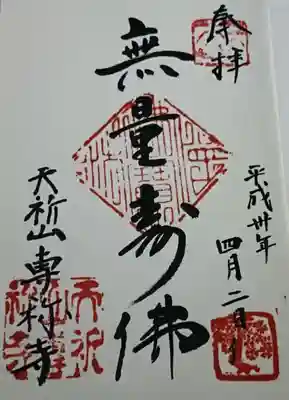 奉拝
無量寿佛
平成卅年
四月二日
天祈山専利寺